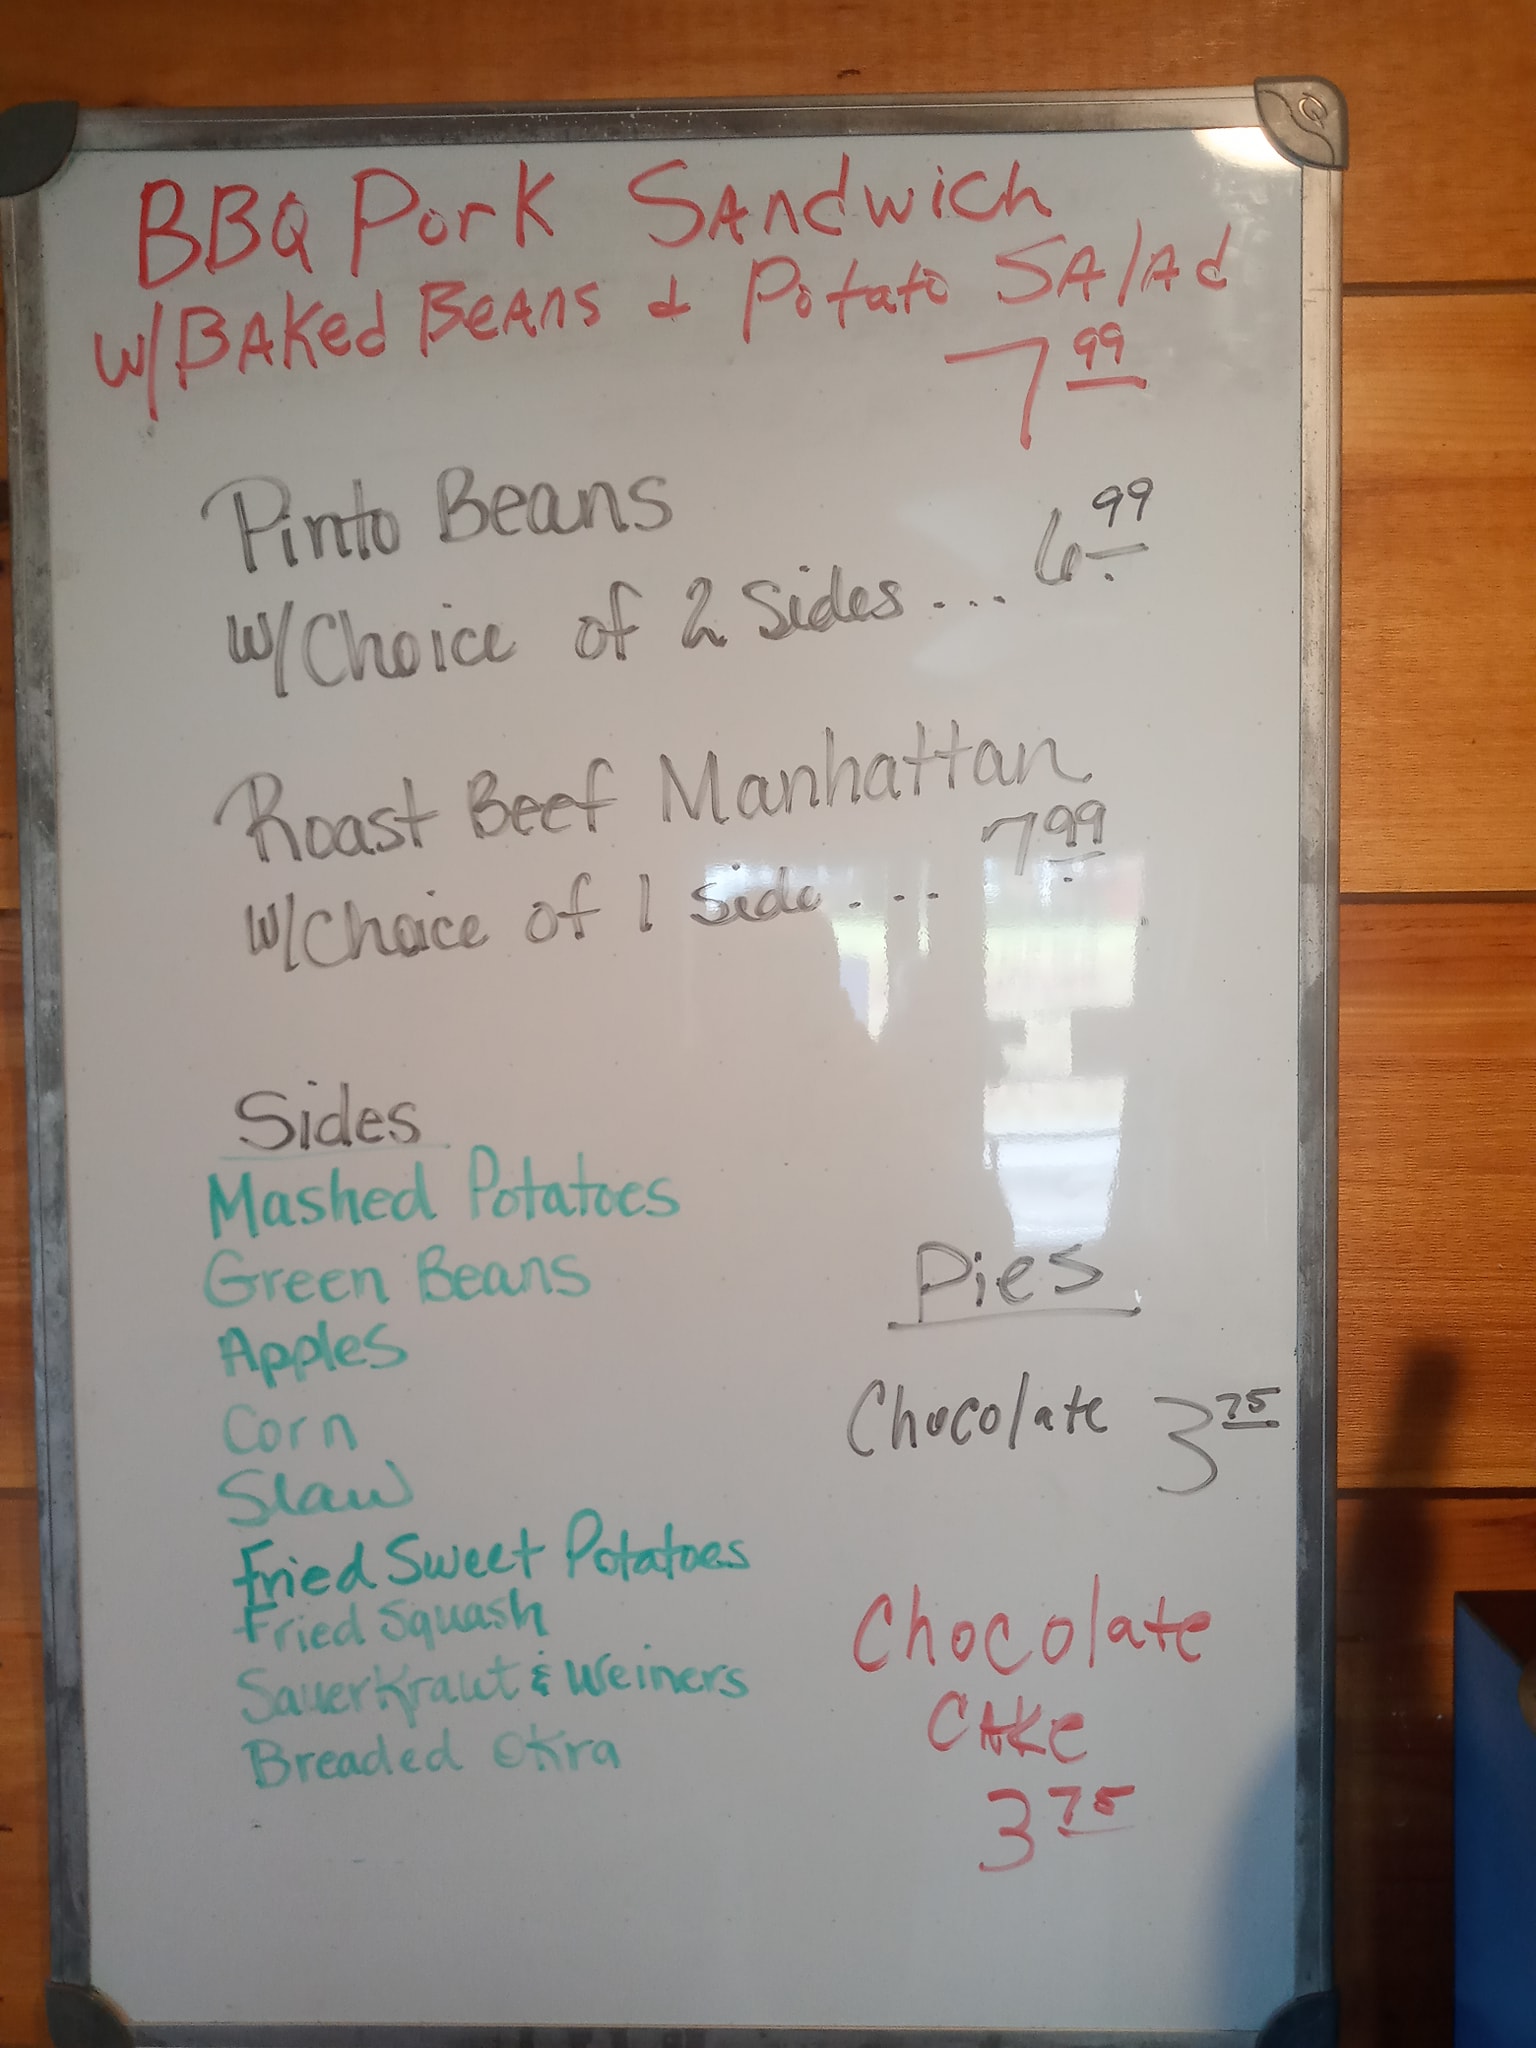 BBQ Pork Sandwich
w/Baked Beans & Potato Salad
7 99
Pinto Beans
w/Choice of 2 Sides ... 6 99
Roast Beef Manhattan
w/Choice of 1 side ... 7 99
Sides
Mashed Potatoes
Green Beans
Apples
Corn
Slaw
Fried Sweet Potatoes
Fried Squash
Sauerkraut & Weiners
Breaded Okra
Pies
Chocolate 3 75
Chocolate
Cake
3 75